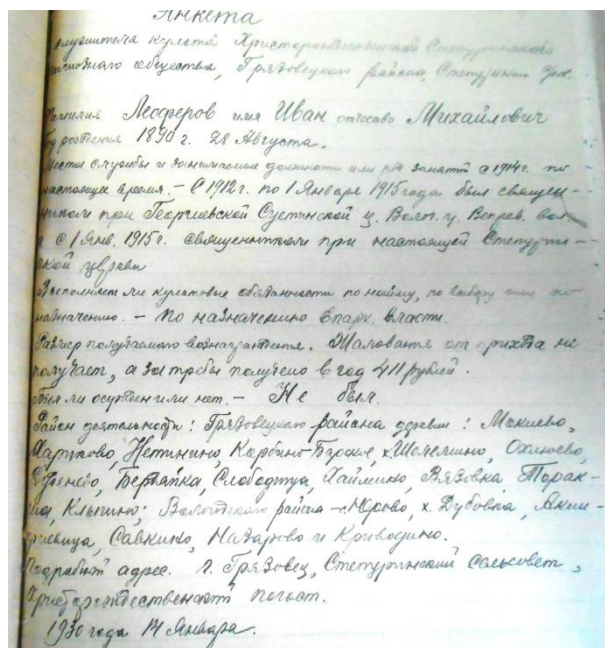 Анкета
служителя культа Христорождественской Степуринской
религиозного общества, Грязовецкого района, Степурин
Фамилия Леоферов имя Иван отчество Михайлович
Год рождения 1890 г. 28 Августа.
Места службы и занимаемые должности или род занятий с 1914 г. по
настоящее время. – С 1912 г. по 1 Января 1915 года был священ-
ником при Георгиевской ц. Волог. у. вол
и с 1 Янв. 1915 г. священником при настоящей Степурин-
ской церкви
Выполняет ли культовые обязанности по найму, по выбору или по
назначению. – По назначению Епарх. власти.
Размер получаемого вознаграждения. Жалования от прихода не
получает, а за требы получено в год 411 рублей.
Был ли осужден или нет. – Не был.
Район деятельности: Грязовецкого района деревни: Макиево,
Нетинино, Слободка, Хаймино, Вязовка, Тарак-
Клыпино; Вологодского района – х. Дубовка,
Савкино, Назарово и Криводино.
Подробный адрес. г. Грязовец, Степуринский сельсовет,
Христорождественский погост.
1930 года 14 Января.